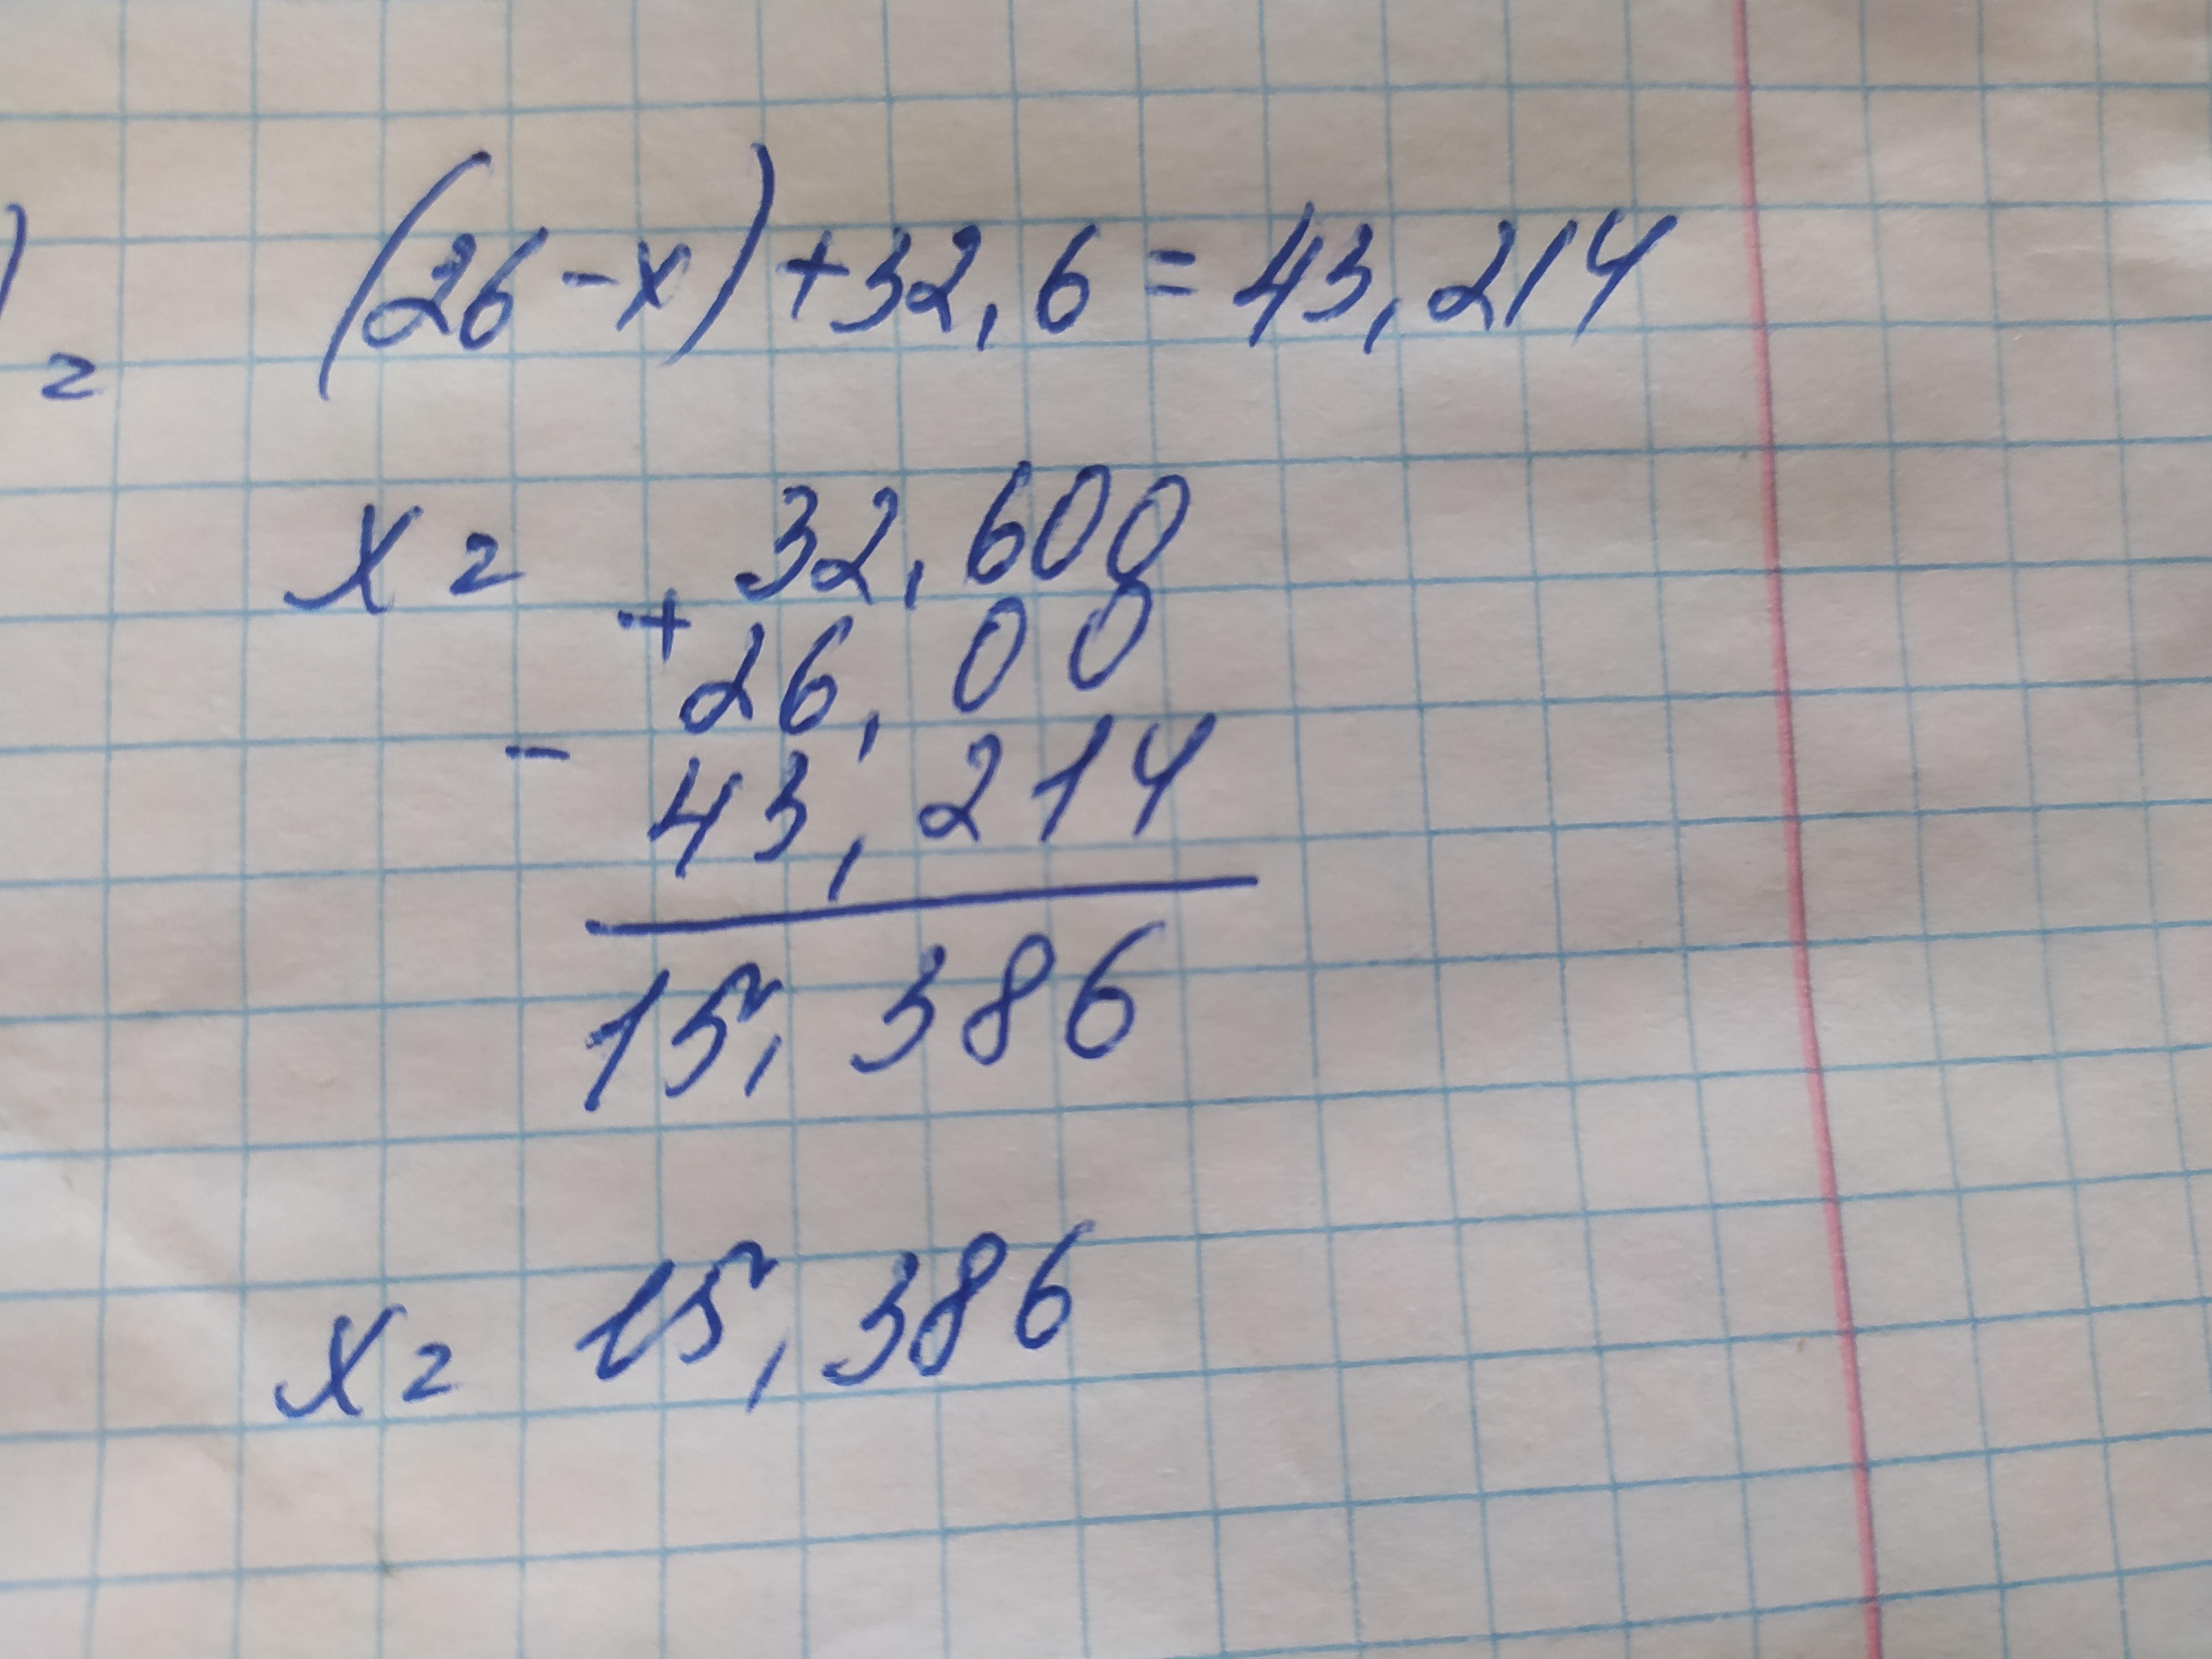 ) (26-x)+32,6=43,214
=
x= 32,600
+ 26,00
- 43,214
15,386
x= 15,386